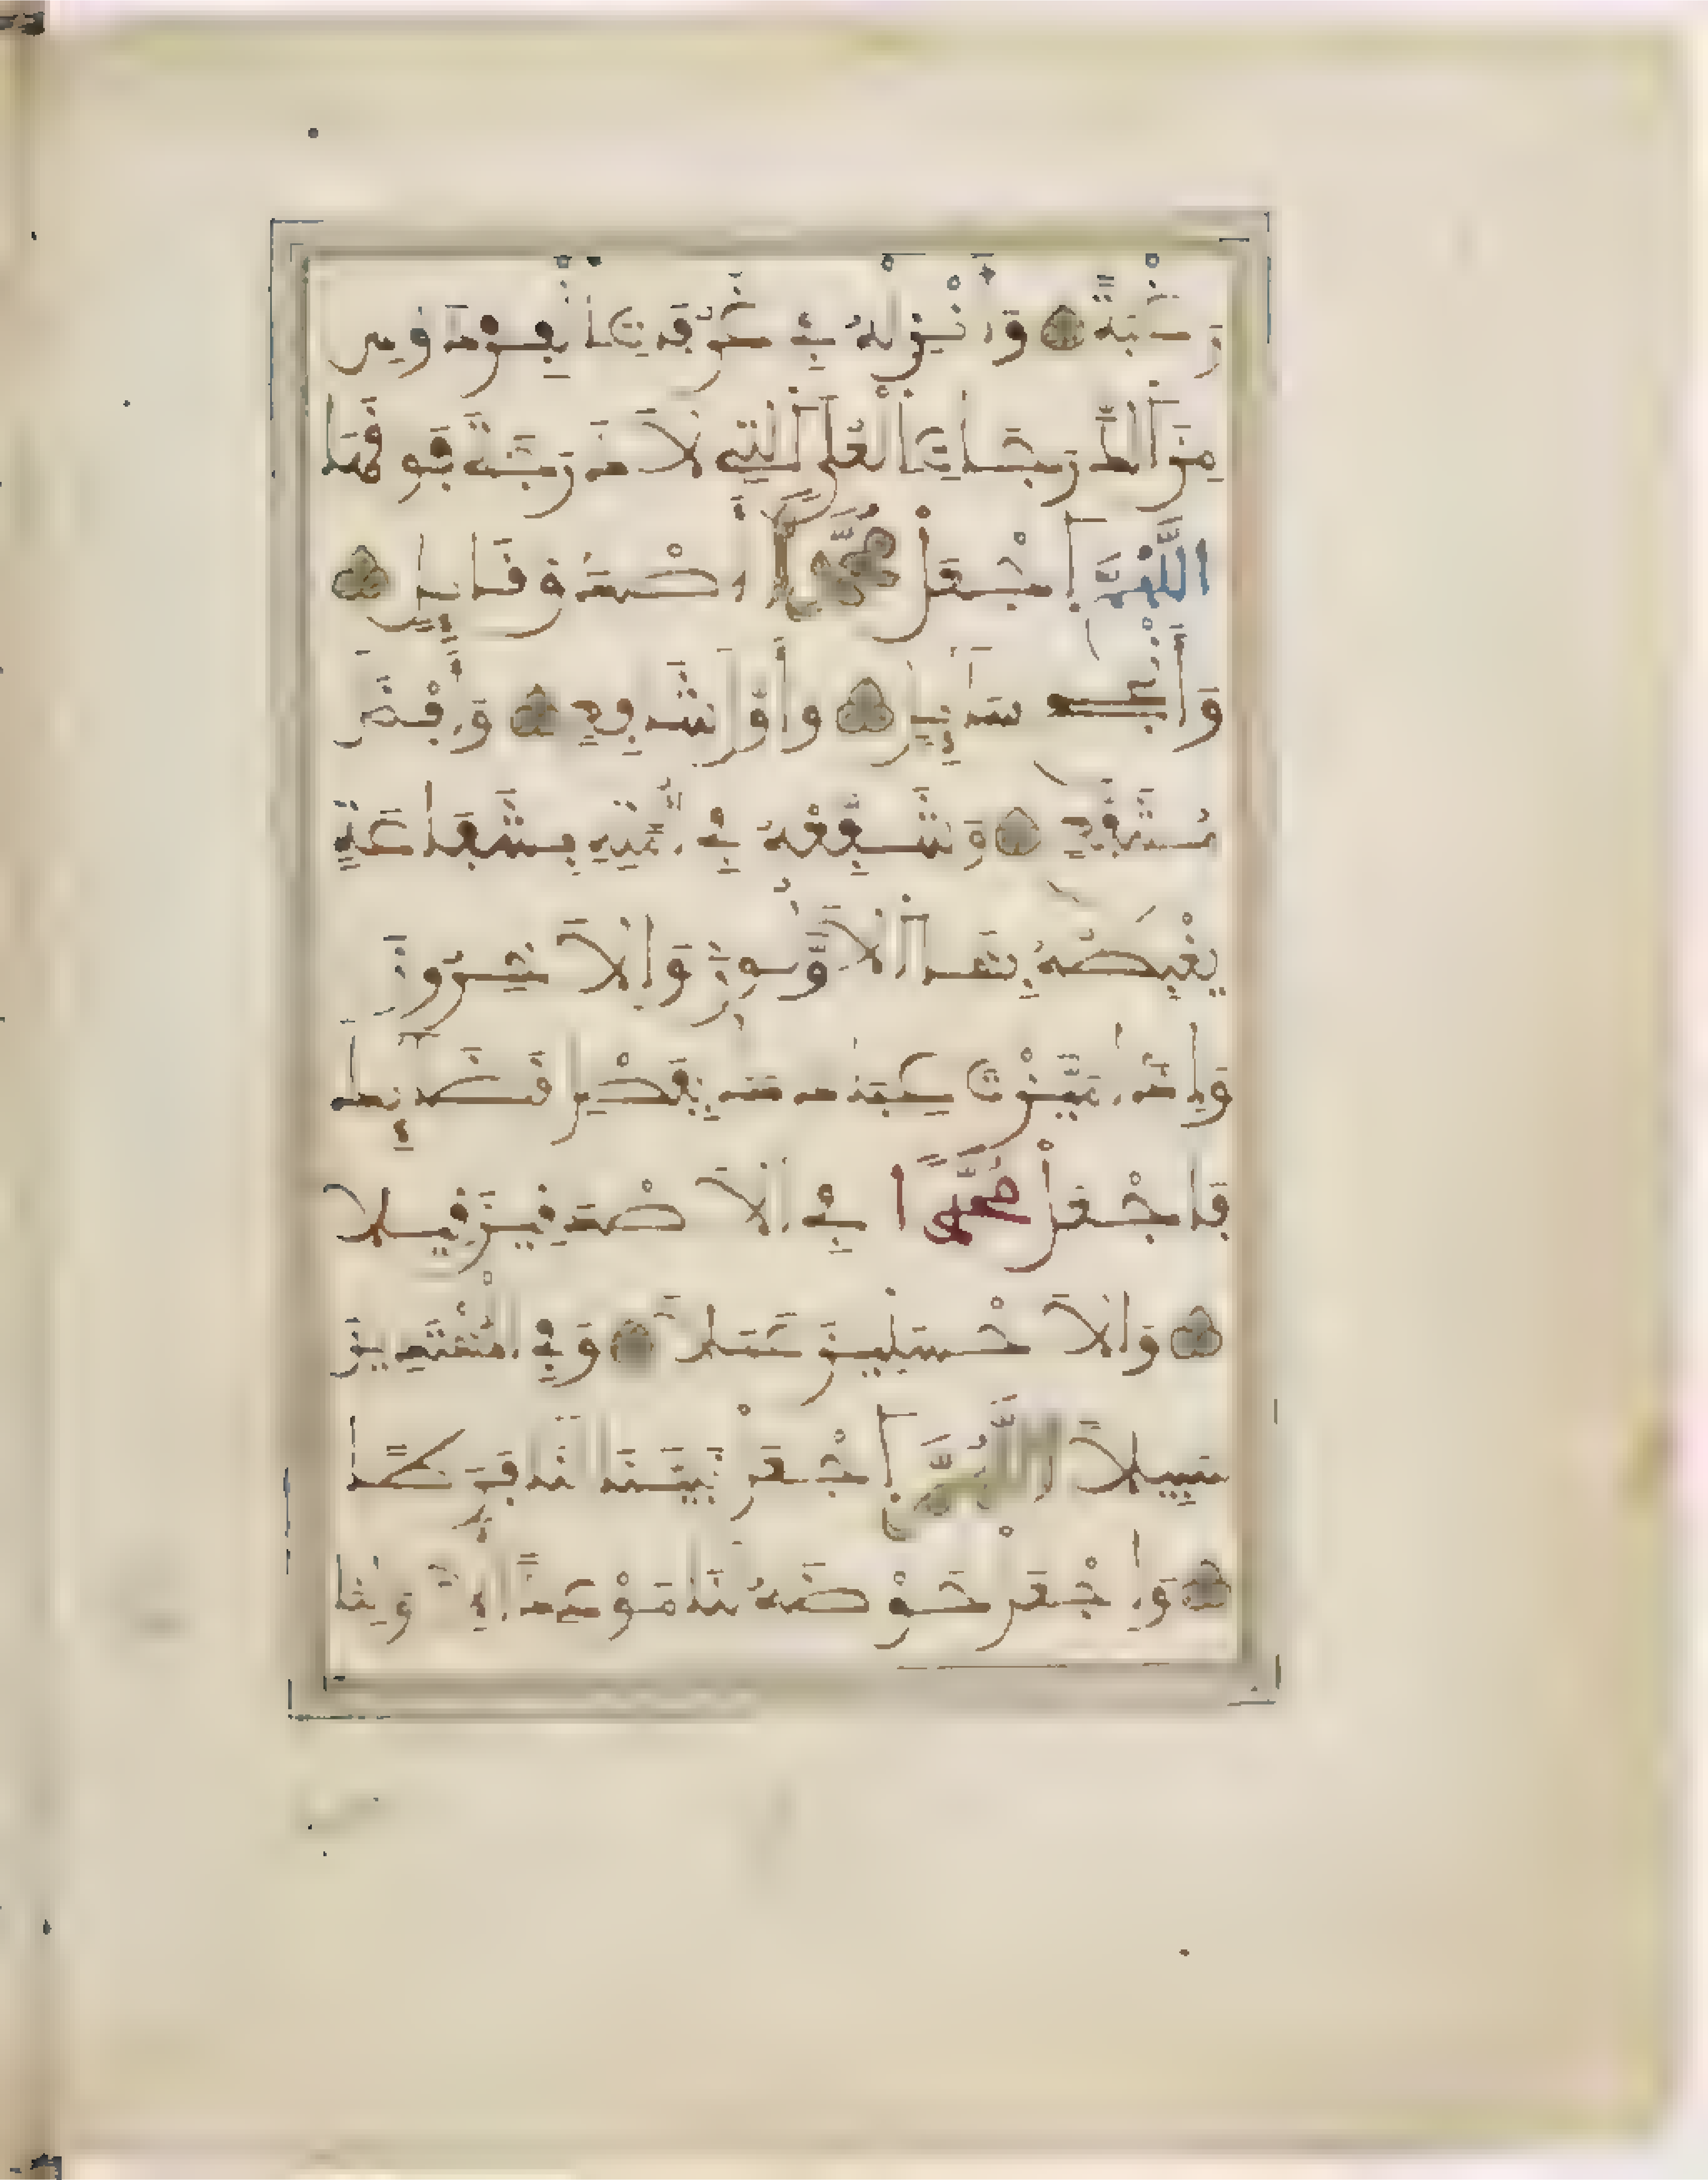 رُتْبَةً وَأَنْزِلْهُ فِي غُرُفَاتِ الْفِرْدَوْسِ
مِنَ الدَّرَجَاتِ الْعُلَى الَّتِي لَا دَرَجَةَ فَوْقَهَا
اللَّهُمَّ اجْعَلْ مُحَمَّدًا أَصْدَقَ قَائِلٍ
وَأَنْجَحَ سَائِلٍ وَأَوَّلَ شَافِعٍ وَأَفْضَلَ
مُشَفَّعٍ وَشَفِّعْهُ فِي أُمَّتِهِ بِشَفَاعَةٍ
يَغْبِطُهُ بِهَا الْأَوَّلُونَ وَالْآخِرُونَ
وَإِذَا مَيَّزْتَ عِبَادَكَ بِفَصْلِ قَضَائِكَ
فَاجْعَلْ مُحَمَّدًا فِي الْأَصْدَقِينَ قِيلًا
وَالْأَحْسَنِينَ عَمَلًا وَفِي الْمَهْدِيِّينَ
سَبِيلًا اللَّهُمَّ اجْعَلْ نَبِيَّنَا لَنَا فَرَطًا
وَاجْعَلْ حَوْضَهُ لَنَا مَوْعِدًا لِأَوَّلِنَا